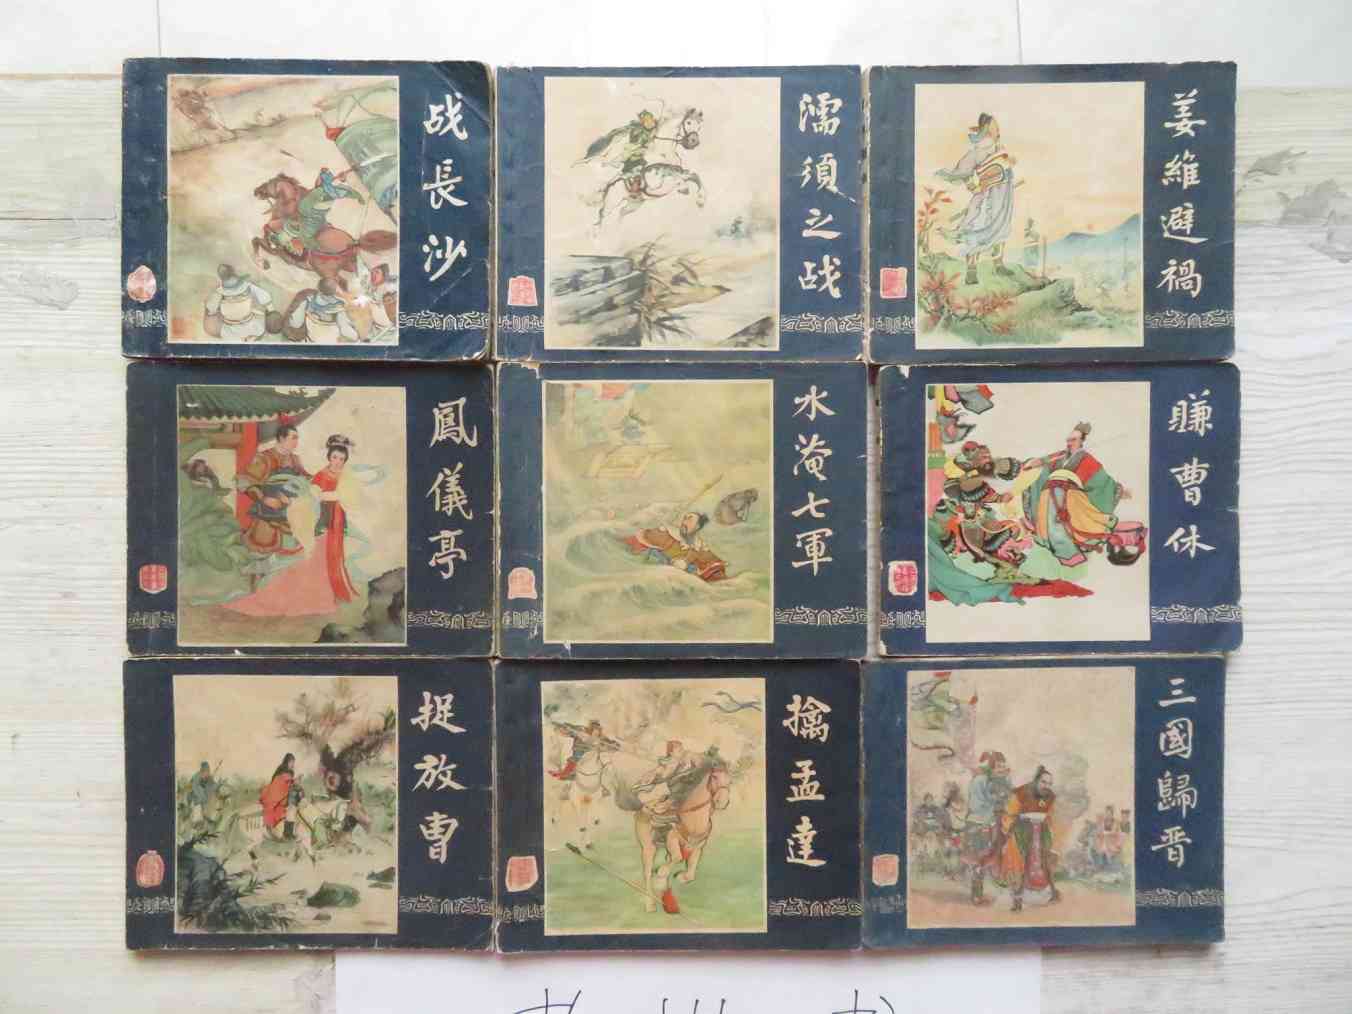 战長沙
濡須之战
姜維避禍
鳳儀亭
水淹七軍
賺曹休
捉放曹
擒孟達
三國歸晋